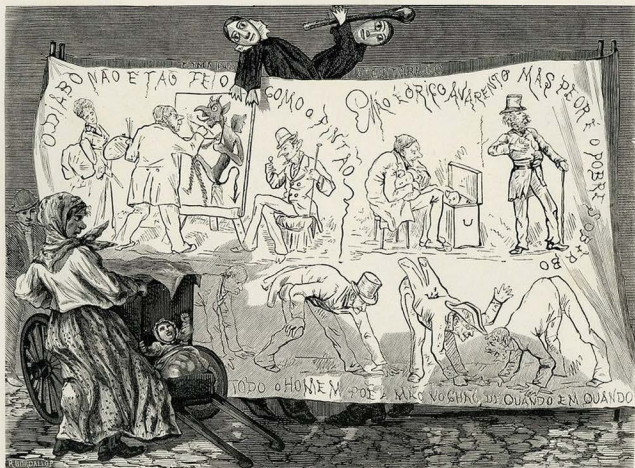 O DIABO NÃO É TÃO FEIO COMO O PINTÃO
MÁO É O RICO AVARENTO MAS PEOR É O POBRE SOBARBO
TODO O HOMEM POE A MÃO NO CHÃO DE QUANDO EM QUANDO
R. BORDALLO P.